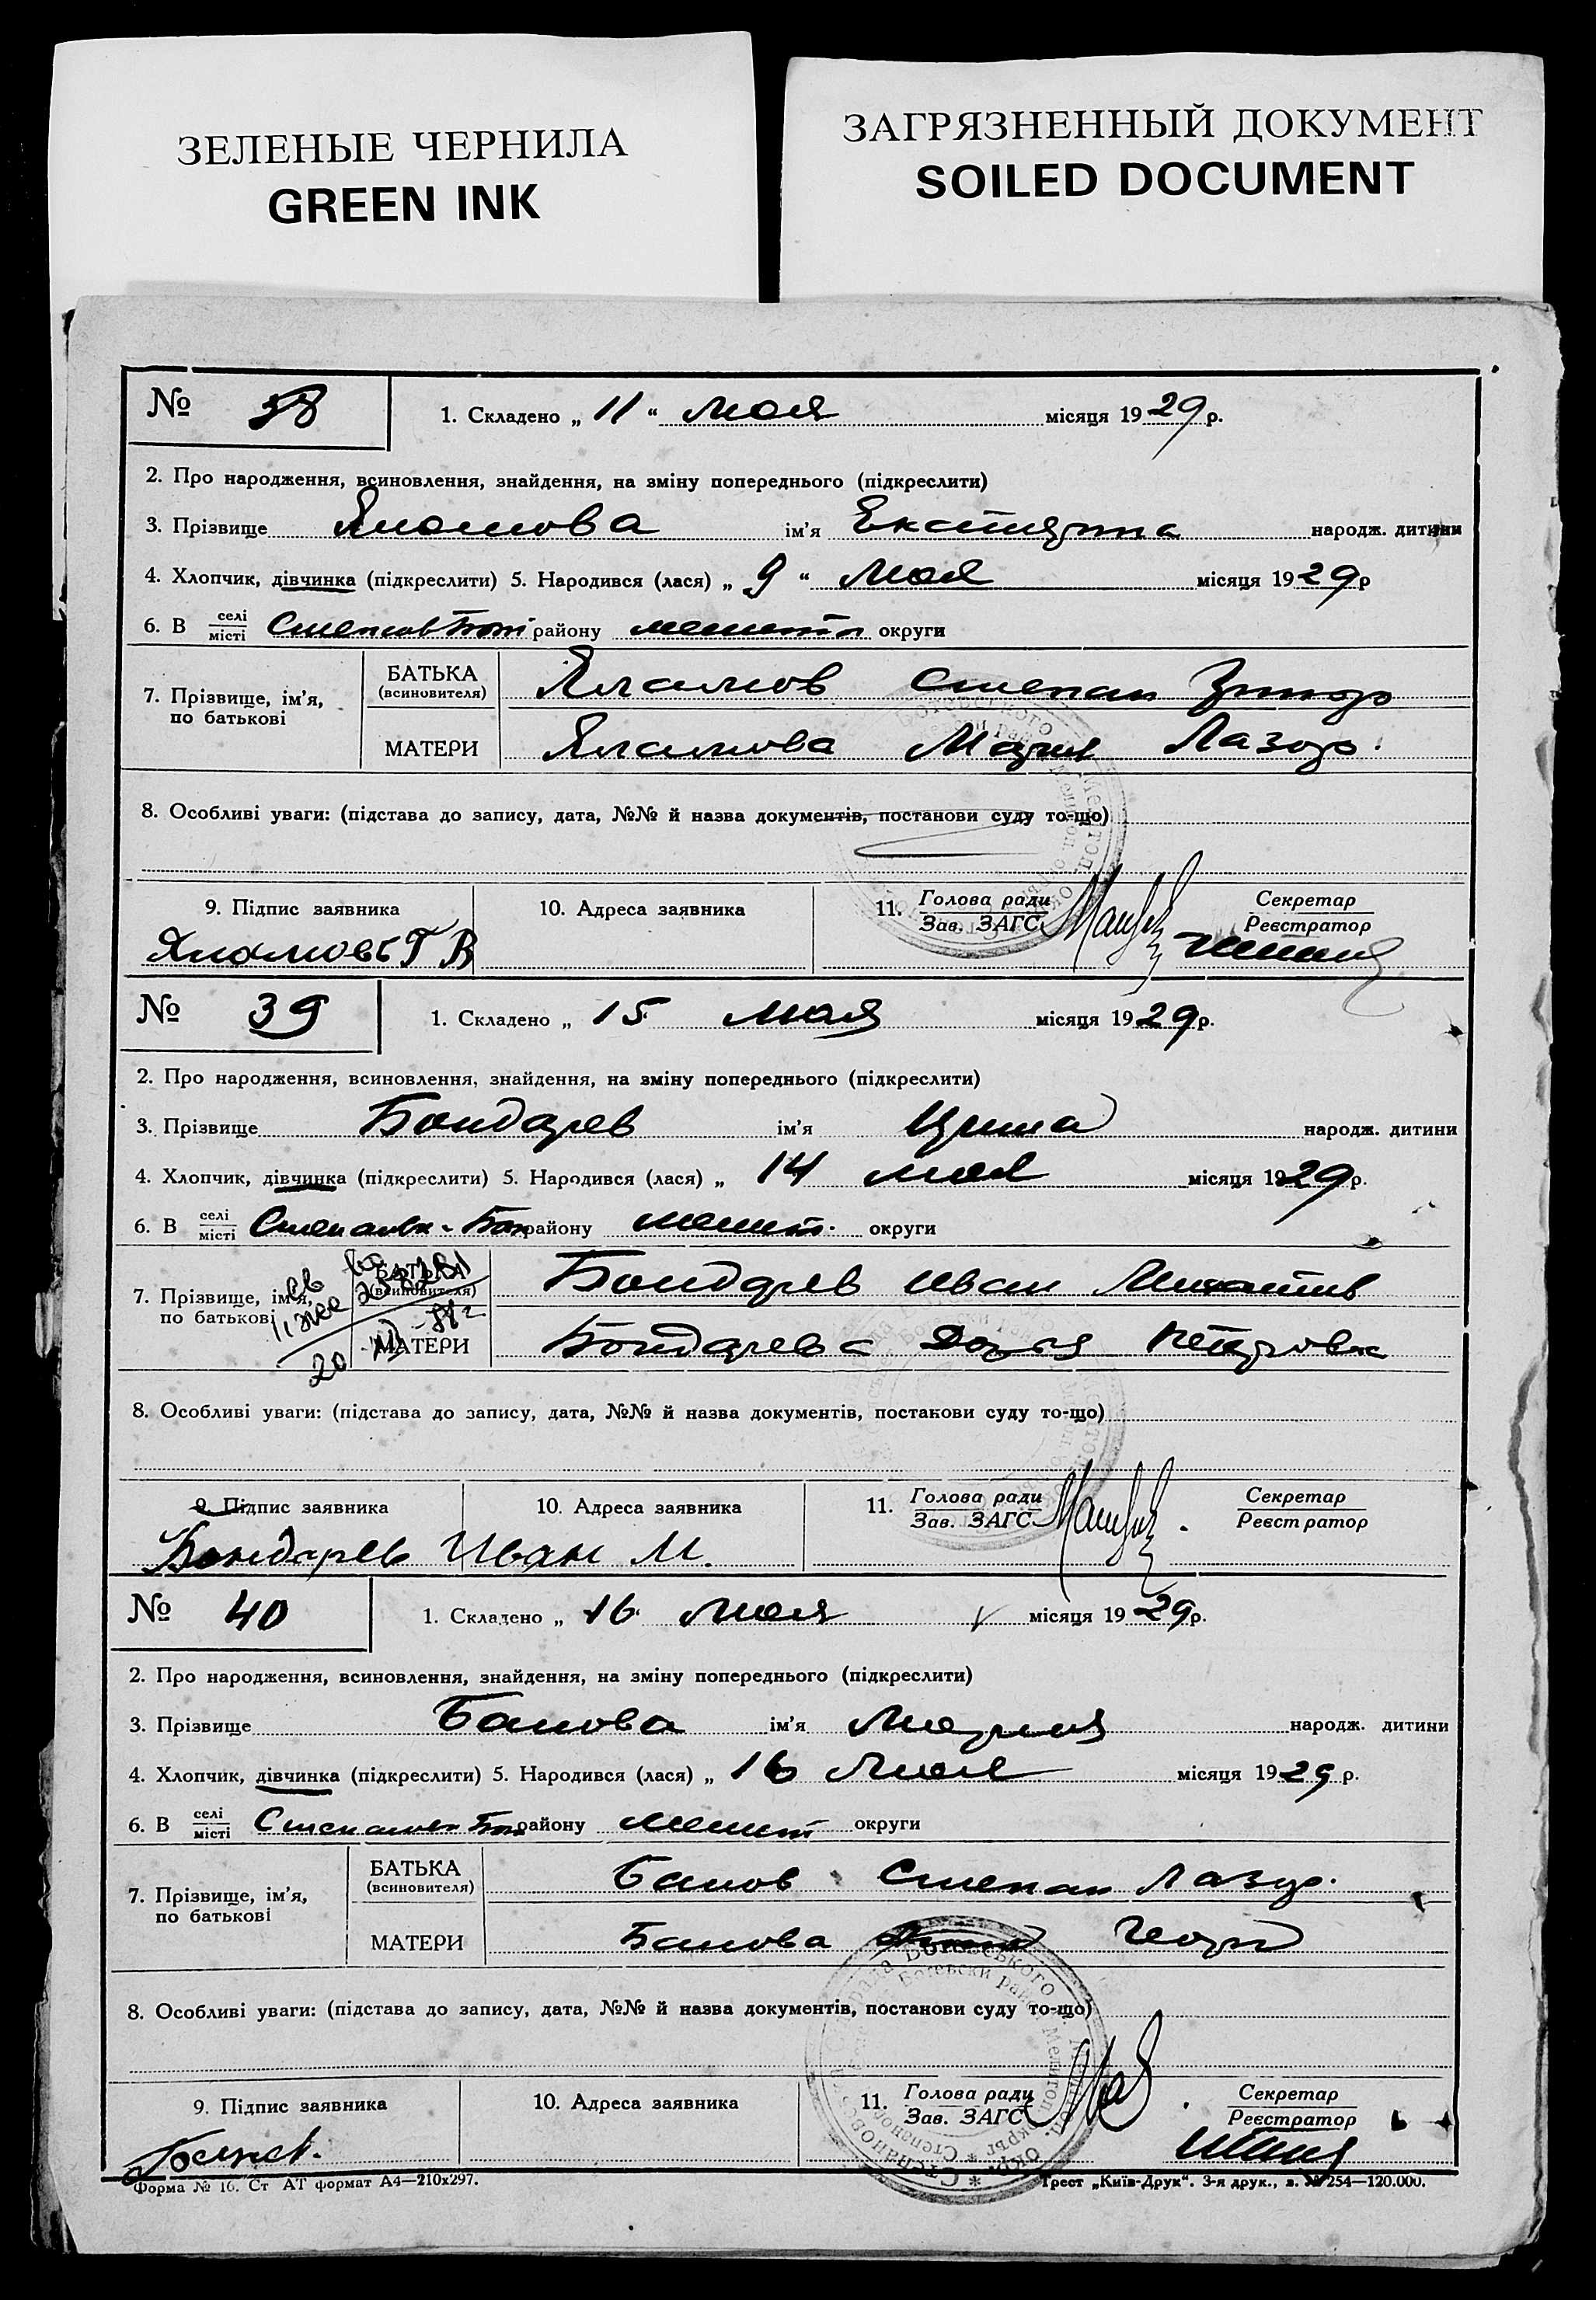 ЗЕЛЕНЫЕ ЧЕРНИЛА
GREEN INK
ЗАГРЯЗНЕННЫЙ ДОКУМЕНТ
SOILED DOCUMENT
№ 38 1. Складено „ 11 “ мая місяця 1929 р.
2. Про народження, всиновлення, знайдення, на зміну попереднього (підкреслити)
3. Прізвище Яламова ім'я Екатирина народж. дитини
4. Хлопчик, дівчинка (підкреслити) 5. Народився (лася) „ 9 “ Мая місяця 1929 р
6. В селі/місті району округи
7. Прізвище, ім'я, по батькові
БАТЬКА (всиновителя) Яламов Степан
МАТЕРИ Яламова Мария Лазар.
8. Особливі уваги: (підстава до запису, дата, №№ й назва документів, постанови суду то-що)
9. Підпис заявника 10. Адреса заявника 11. Голова ради/Зав. ЗАГС Секретар/Реєстратор
№ 39 1. Складено „ 15 мая місяця 1929 р.
2. Про народження, всиновлення, знайдення, на зміну попереднього (підкреслити)
3. Прізвище Бондарев ім'я Ирина народж. дитини
4. Хлопчик, дівчинка (підкреслити) 5. Народився (лася) „ 14 мая місяця 1929 р.
6. В селі/місті району мелит. округи
7. Прізвище, ім'я, по батькові
БАТЬКА (всиновителя) Бондарев Иван
МАТЕРИ Бондарева Петровна
8. Особливі уваги: (підстава до запису, дата, №№ й назва документів, постанови суду то-що)
9. Підпис заявника 10. Адреса заявника 11. Голова ради/Зав. ЗАГС Секретар/Реєстратор
Бондарев Иван М.
№ 40 1. Складено „ 16 мая місяця 1929 р.
2. Про народження, всиновлення, знайдення, на зміну попереднього (підкреслити)
3. Прізвище Банова ім'я Мария народж. дитини
4. Хлопчик, дівчинка (підкреслити) 5. Народився (лася) „ 16 Мая місяця 1929 р.
6. В селі/місті району мелит округи
7. Прізвище, ім'я, по батькові
БАТЬКА (всиновителя) Банов Степан Лазар.
МАТЕРИ Банова Георг
8. Особливі уваги: (підстава до запису, дата, №№ й назва документів, постанови суду то-що)
9. Підпис заявника 10. Адреса заявника 11. Голова ради/Зав. ЗАГС Секретар/Реєстратор
Форма № 16. Ст АТ формат А4—210х297. Трест „Київ-Друк“. 3-я друк., з. № 254—120.000.